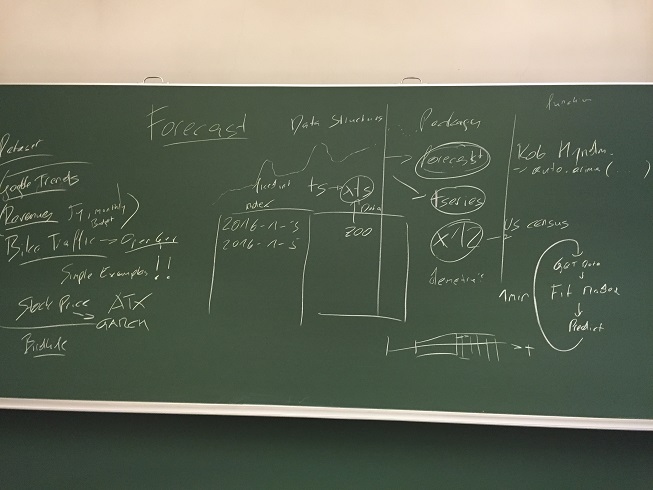 Forecast
Dataser
Google Trends
Revenues
monthly
Budget
Bike Traffic →
Simple Examples !!
Stock Price → ATX
GARCH
Data Structure
ts → xts
index
Data
2016-1-3
2016-1-5
200
Package
forecast
tseries
x12 → US census
Function
Rob Hyndm.
→ auto.arima(...)
1 min
Get Data
↓
Fit Model
↓
Predict
t